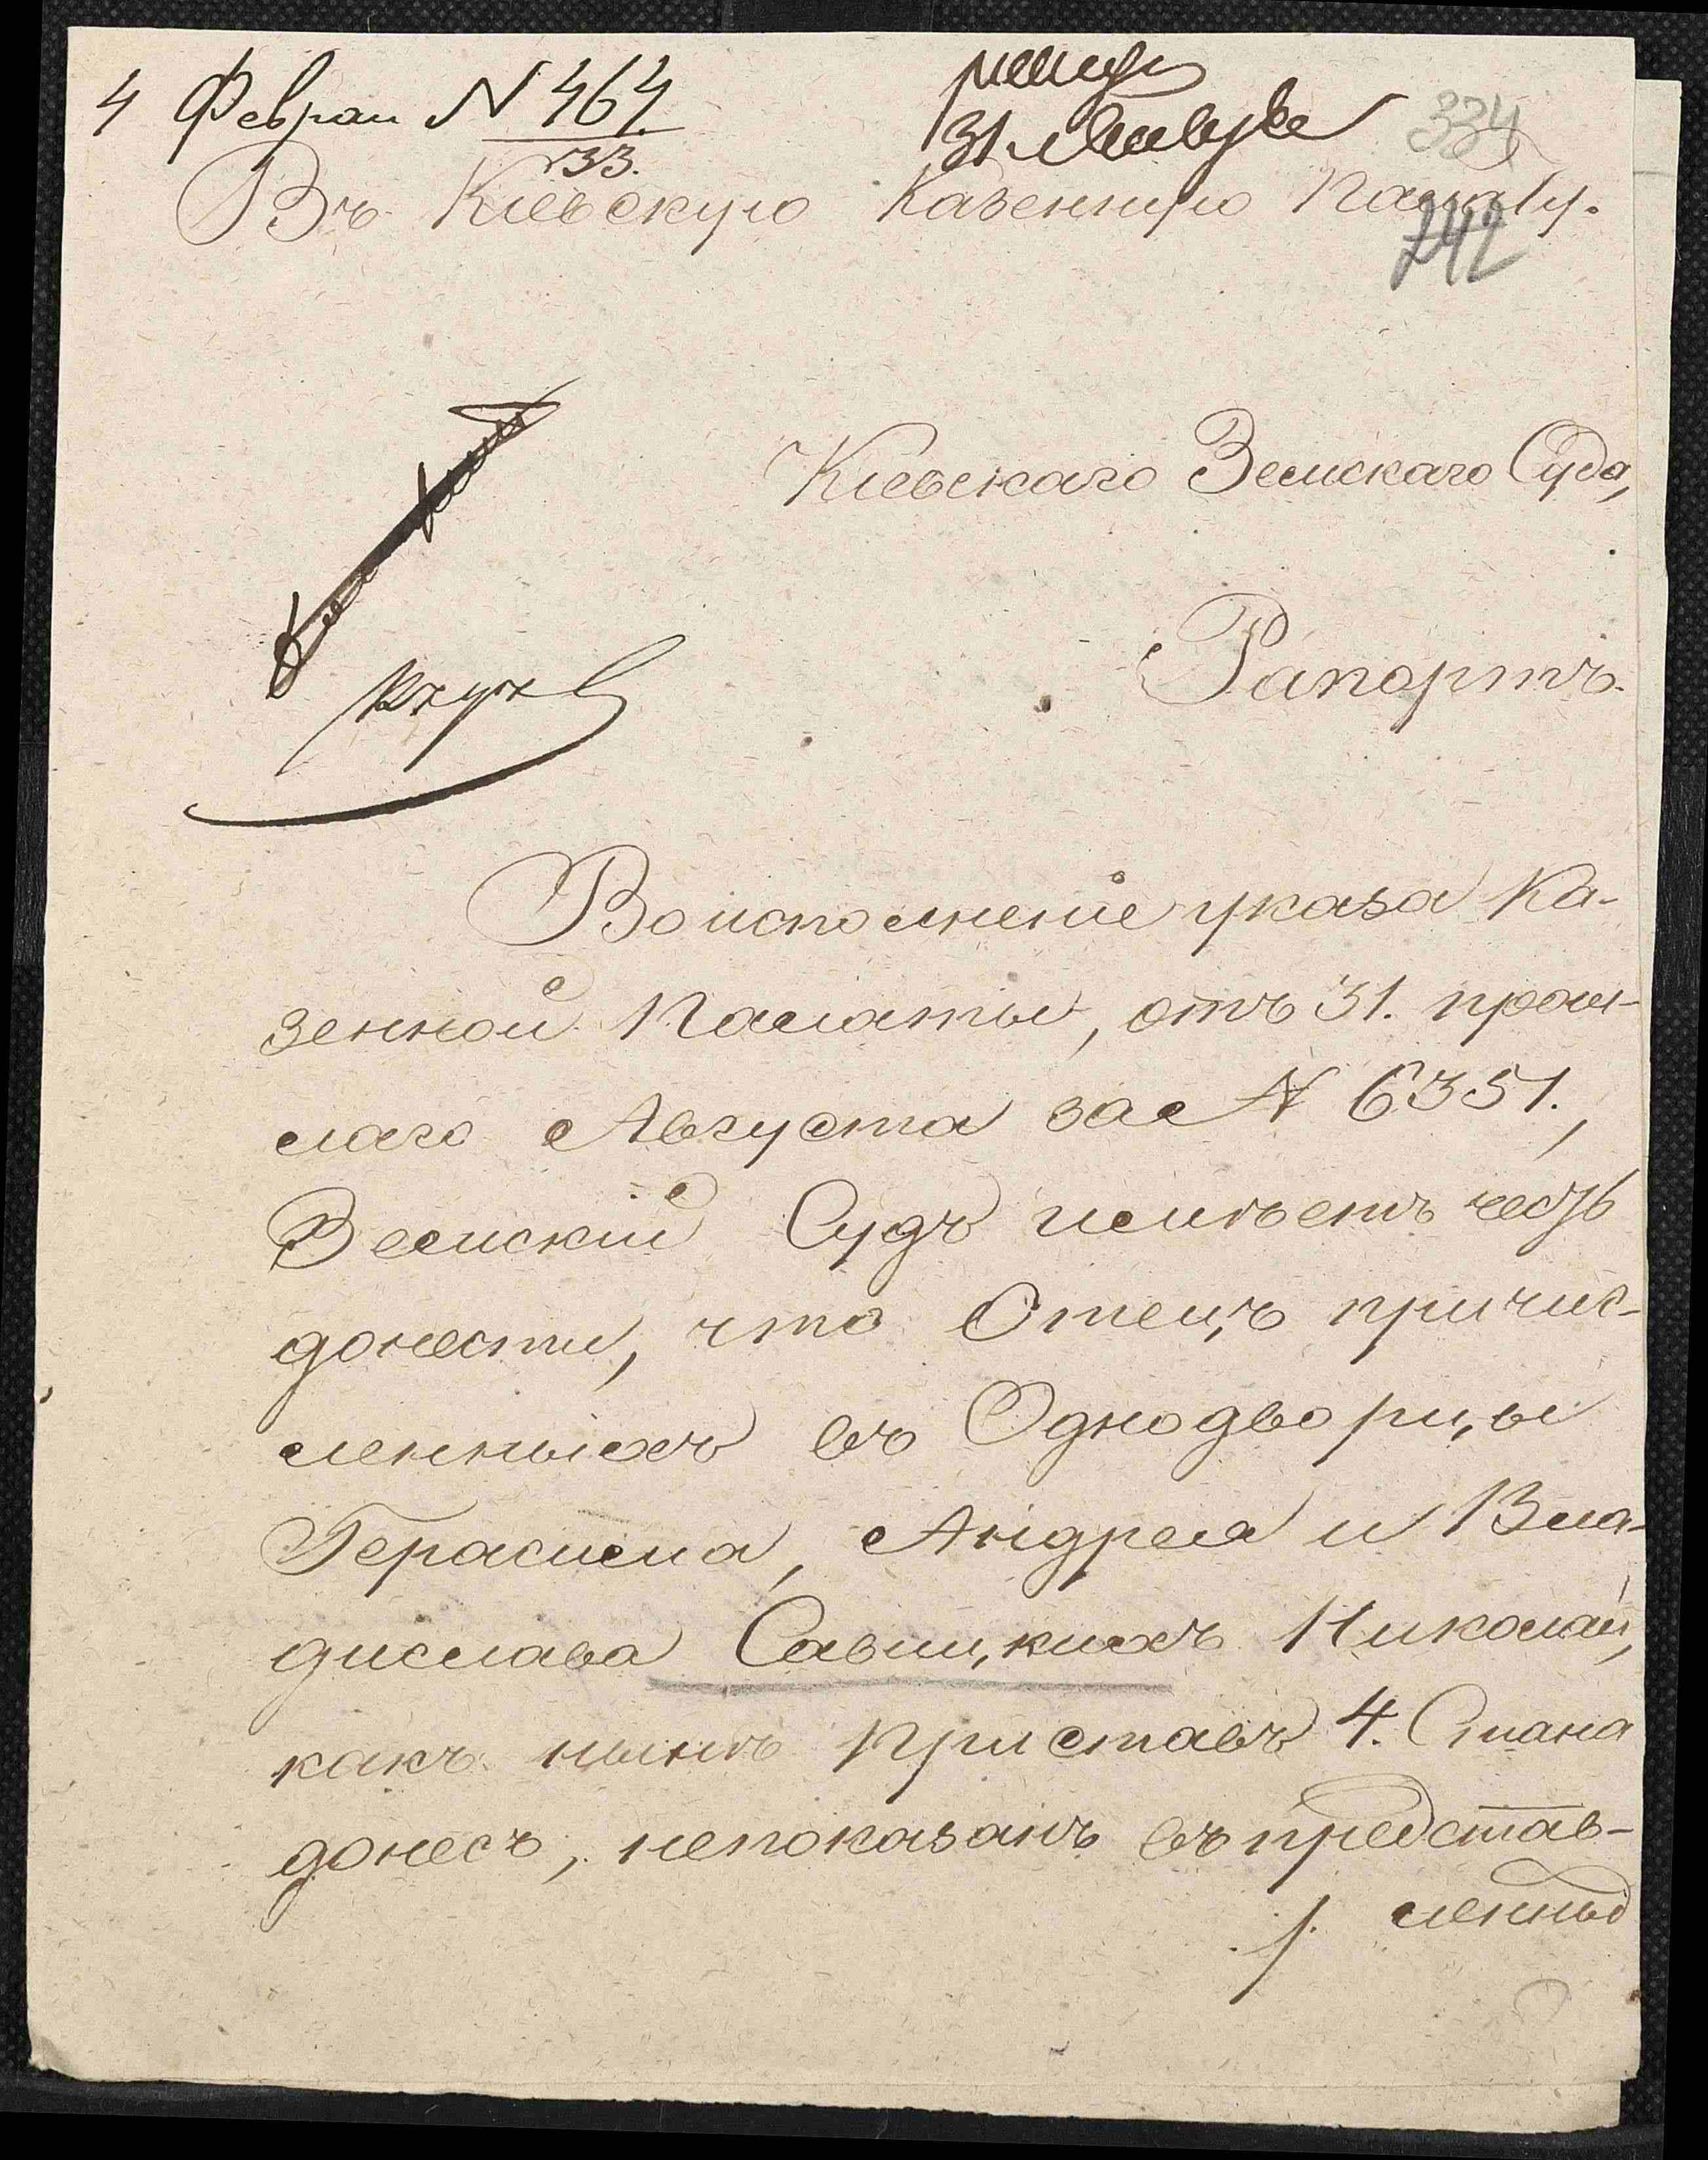 4 Феврал N 464
33.
31 Января
334
Въ Кіевскую Казенную Палату.
242
Кіевскаго Земскаго Суда,
Рапортъ.
Во исполненіе указа Ка-
зенной Палаты, отъ 31. прош-
лаго Августа за N 6351.,
Земскій Судъ имѣетъ честь
донести, что Отецъ причис-
ленныхъ въ Однодворцы
Герасима, Андрея и Вла-
дислава Савицкихъ Николай,
какъ нынѣ Приставъ 4. Стана
донесъ, непоказанъ въ представ-
ленныхъ